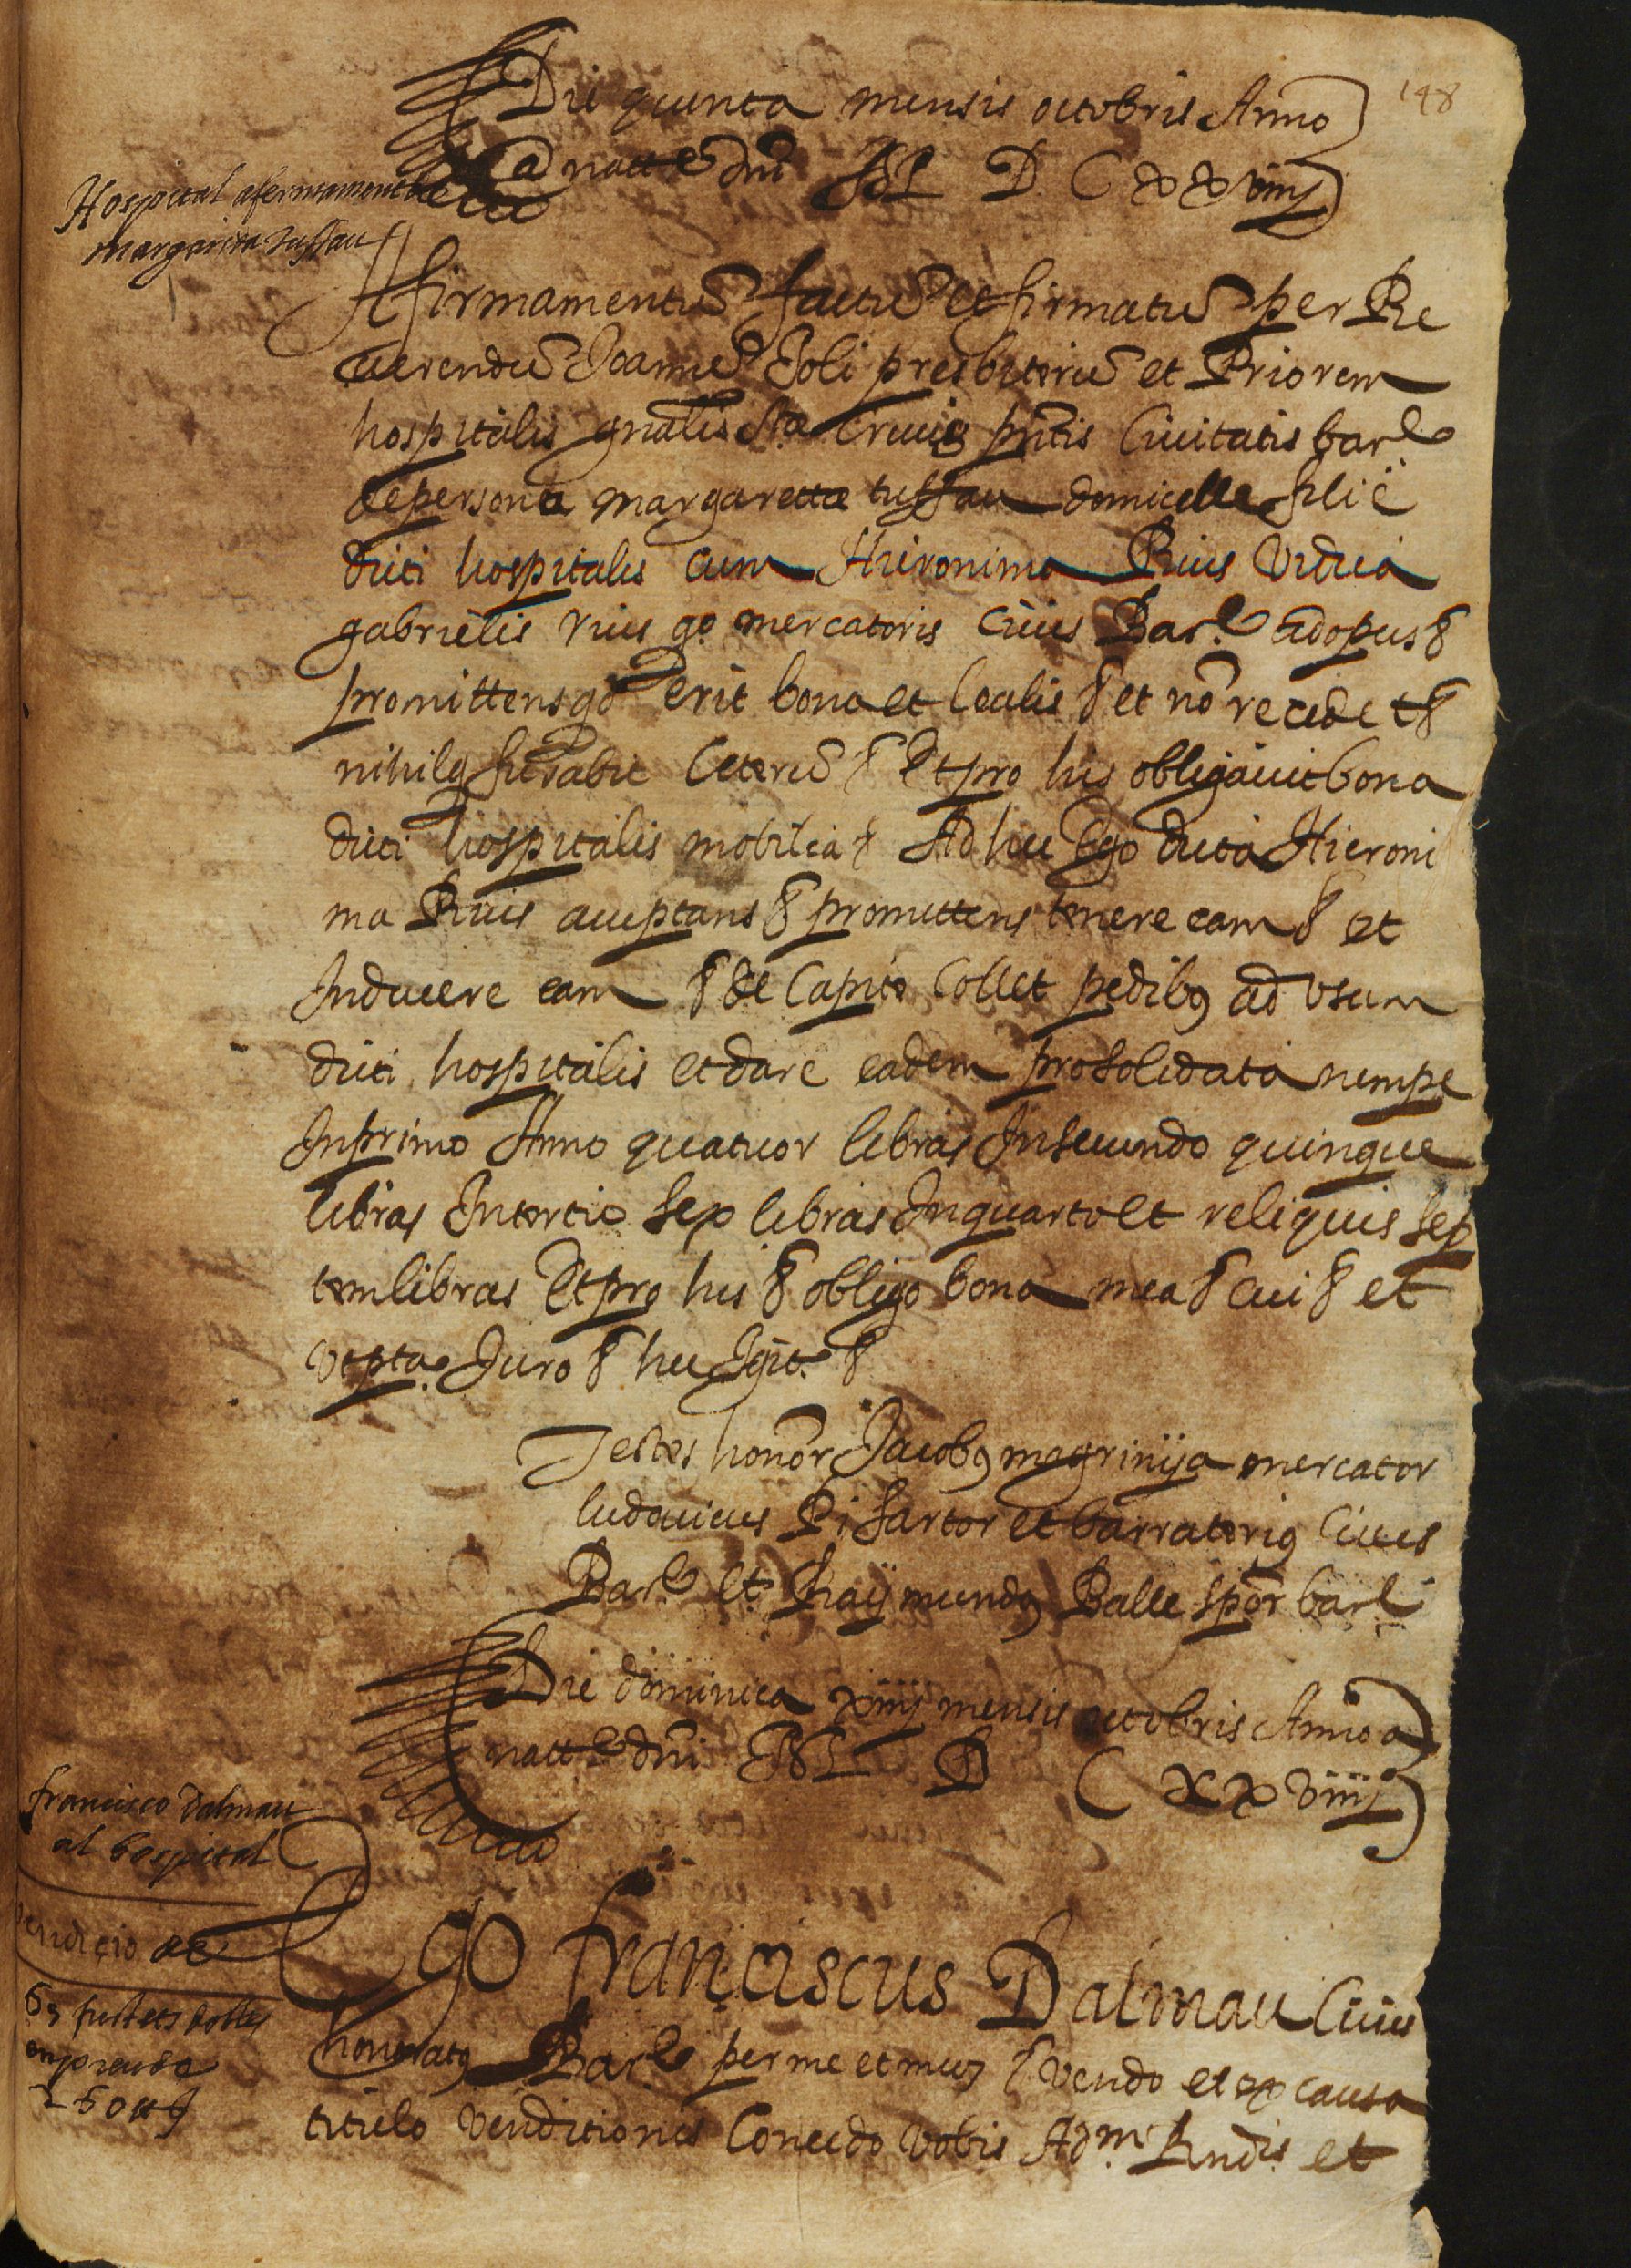 148
Die quinta mensis octobris Anno
a natt.e dni M D C x x viiij
Hospital afermament de
margarita tussau
Afirmamentũ factũ et firmatũ per Re
uerendũ Joannẽ Joli presbiterũ et Priorem
hospitalis gnãlis Sta Crucis pñtis Ciuitatis barle
de persona margaretta tussau domicelle filiẽ
dicti hospitalis cum Hieronima Rius vidua
gabrielis rius qo mercatoris Ciuis Barle ad opus &
promittens qd erit bona et lealis & et nõ recedet &
nihilq furabit Ceterũ & Et pro his obligauit bona
dicti hospitalis mobilia & Ad hec Ego dicta Hieroni
ma Riuis acceptans & promittens tenere eam & et
Inducere eam & de Capite Collet pedibq ad vsum
dicti hospitalis et dare eadem pro solidata nempe
In primo Anno quatuor libras In secundo quinque
libras In tertio sex libras In quarto et reliquis sep
tem libras Et pro his & obligo bona mea & cui & et
vt pta. Juro & hec Igit. &
Testes honor Jacobq magrinya mercator
ludouicus Pi sartor et barratoriq Ciues
Barle et Raymundq Balle scptor barle
Die dominica xiiij mensis octobris Anno a
natt.e dni M D C x x viiij
francisco dalmau
al hospital
vendicio de
fustets
Ego franciscus Dalmau Ciuis
honoratq Barle per me et meos & vendo et ex causa
titulo venditionis Concedo vobis Adm. Rndis. et